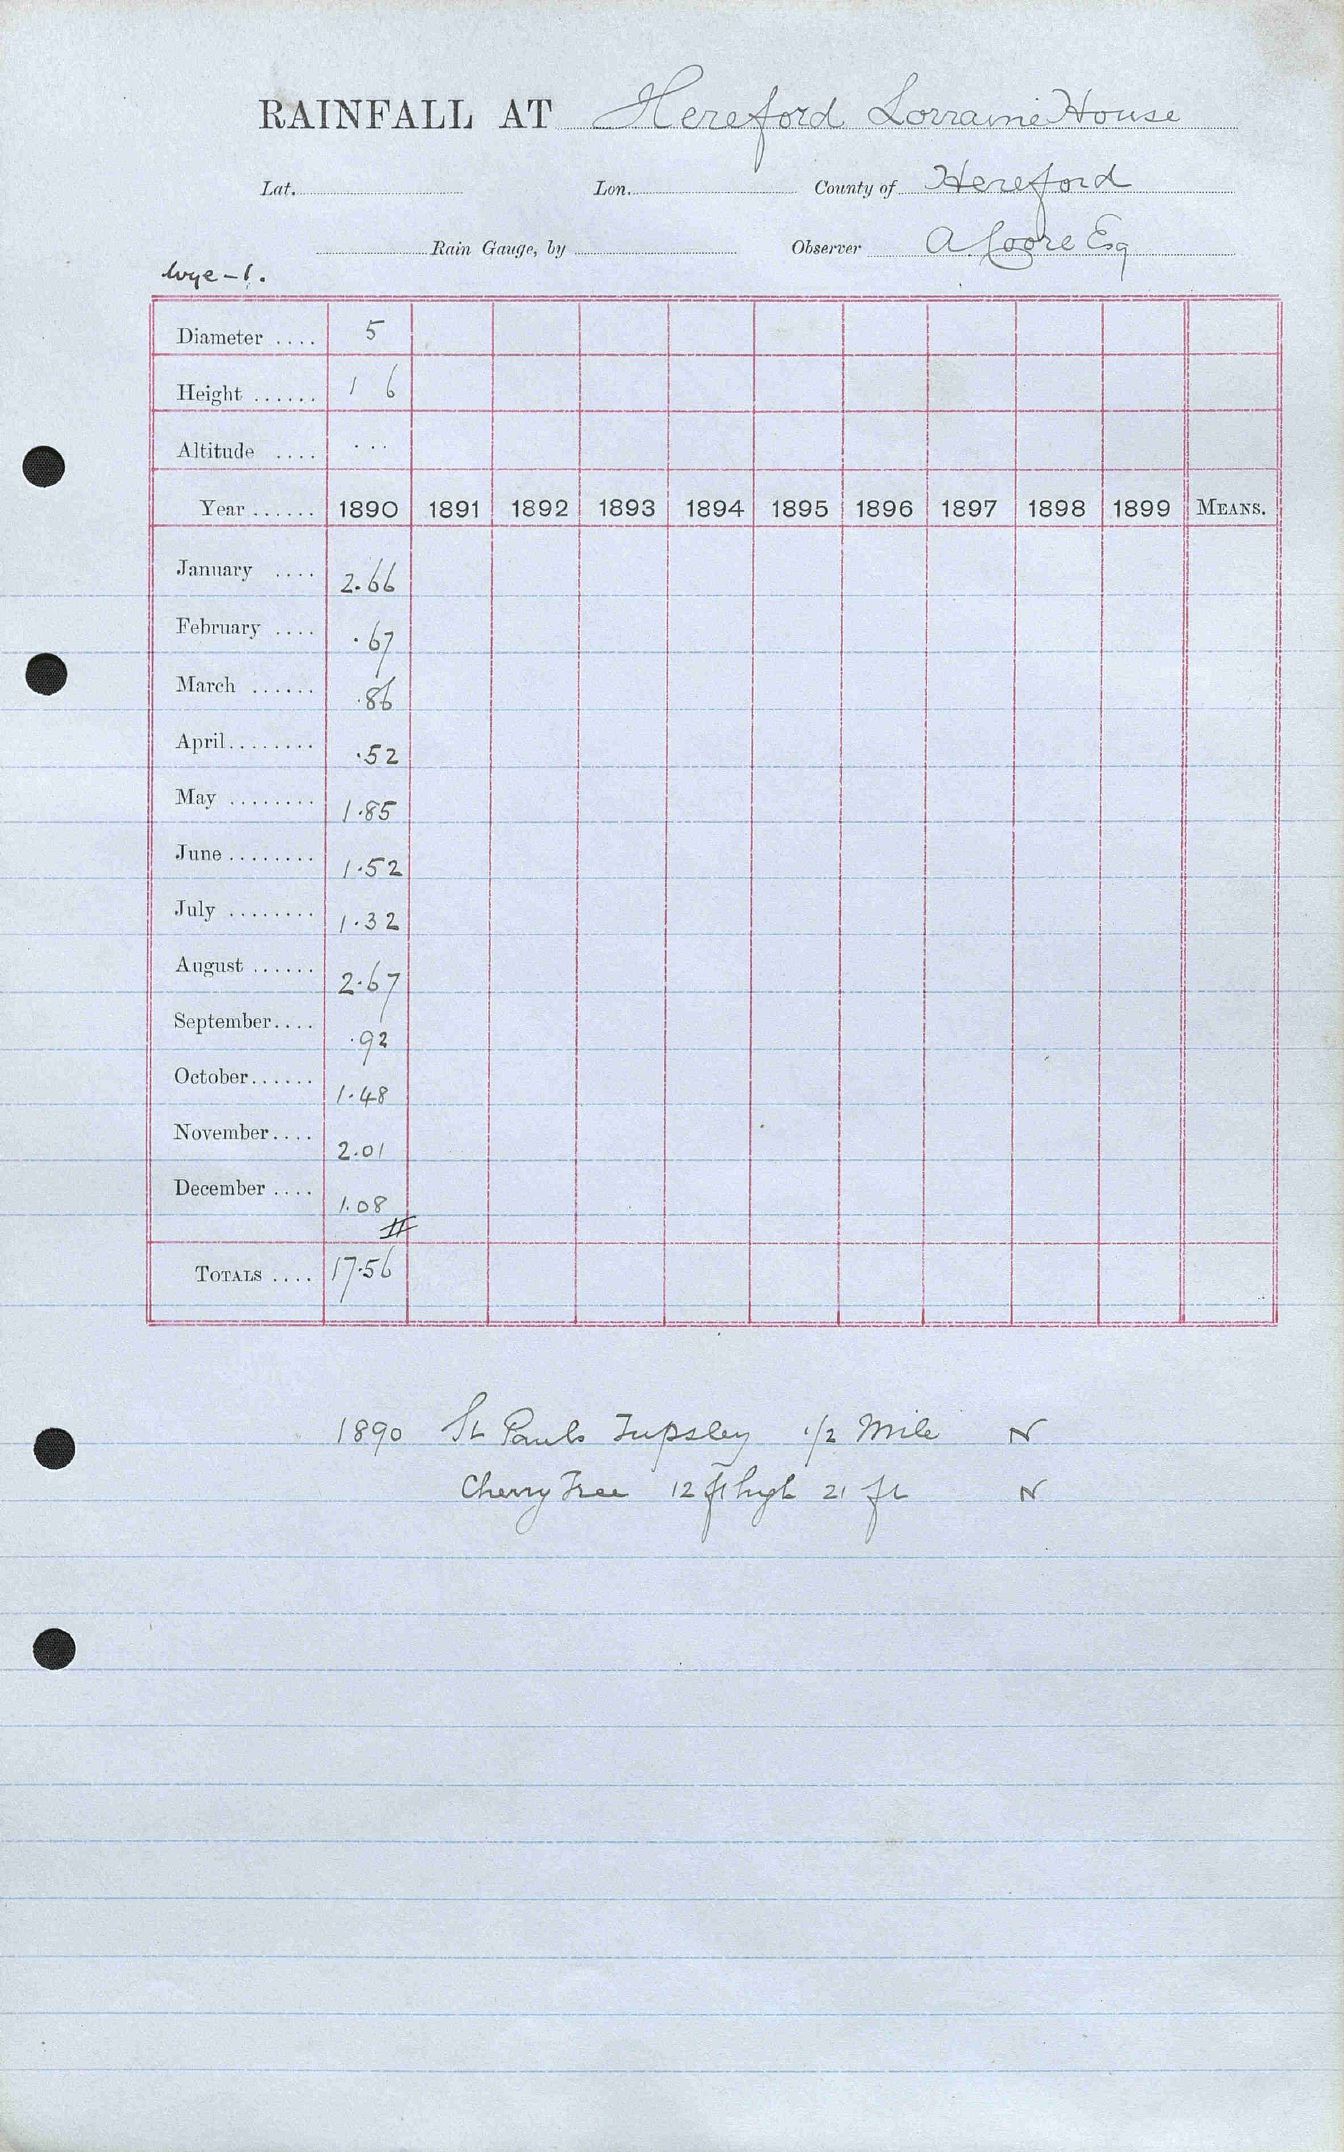 RAINFALL AT Hereford Lorraine House
Lat. Lon. County of Hereford
Rain Gauge, by Observer A Coore Esq
Wye - 1.
Diameter .... 5
Height ...... 1 6
Altitude .... ...
Year ...... 1890 1891 1892 1893 1894 1895 1896 1897 1898 1899 MEANS.
January .... 2.66
February .... .67
March ...... .86
April ........ .52
May ........ 1.85
June ........ 1.52
July ........ 1.32
August ...... 2.67
September.... .92
October...... 1.48
November.... 2.01
December .... 1.08
TOTALS .... 17.56
1890 St Pauls Tupsley 1/2 Mile N
Cherry Tree 12 ft high 21 ft N